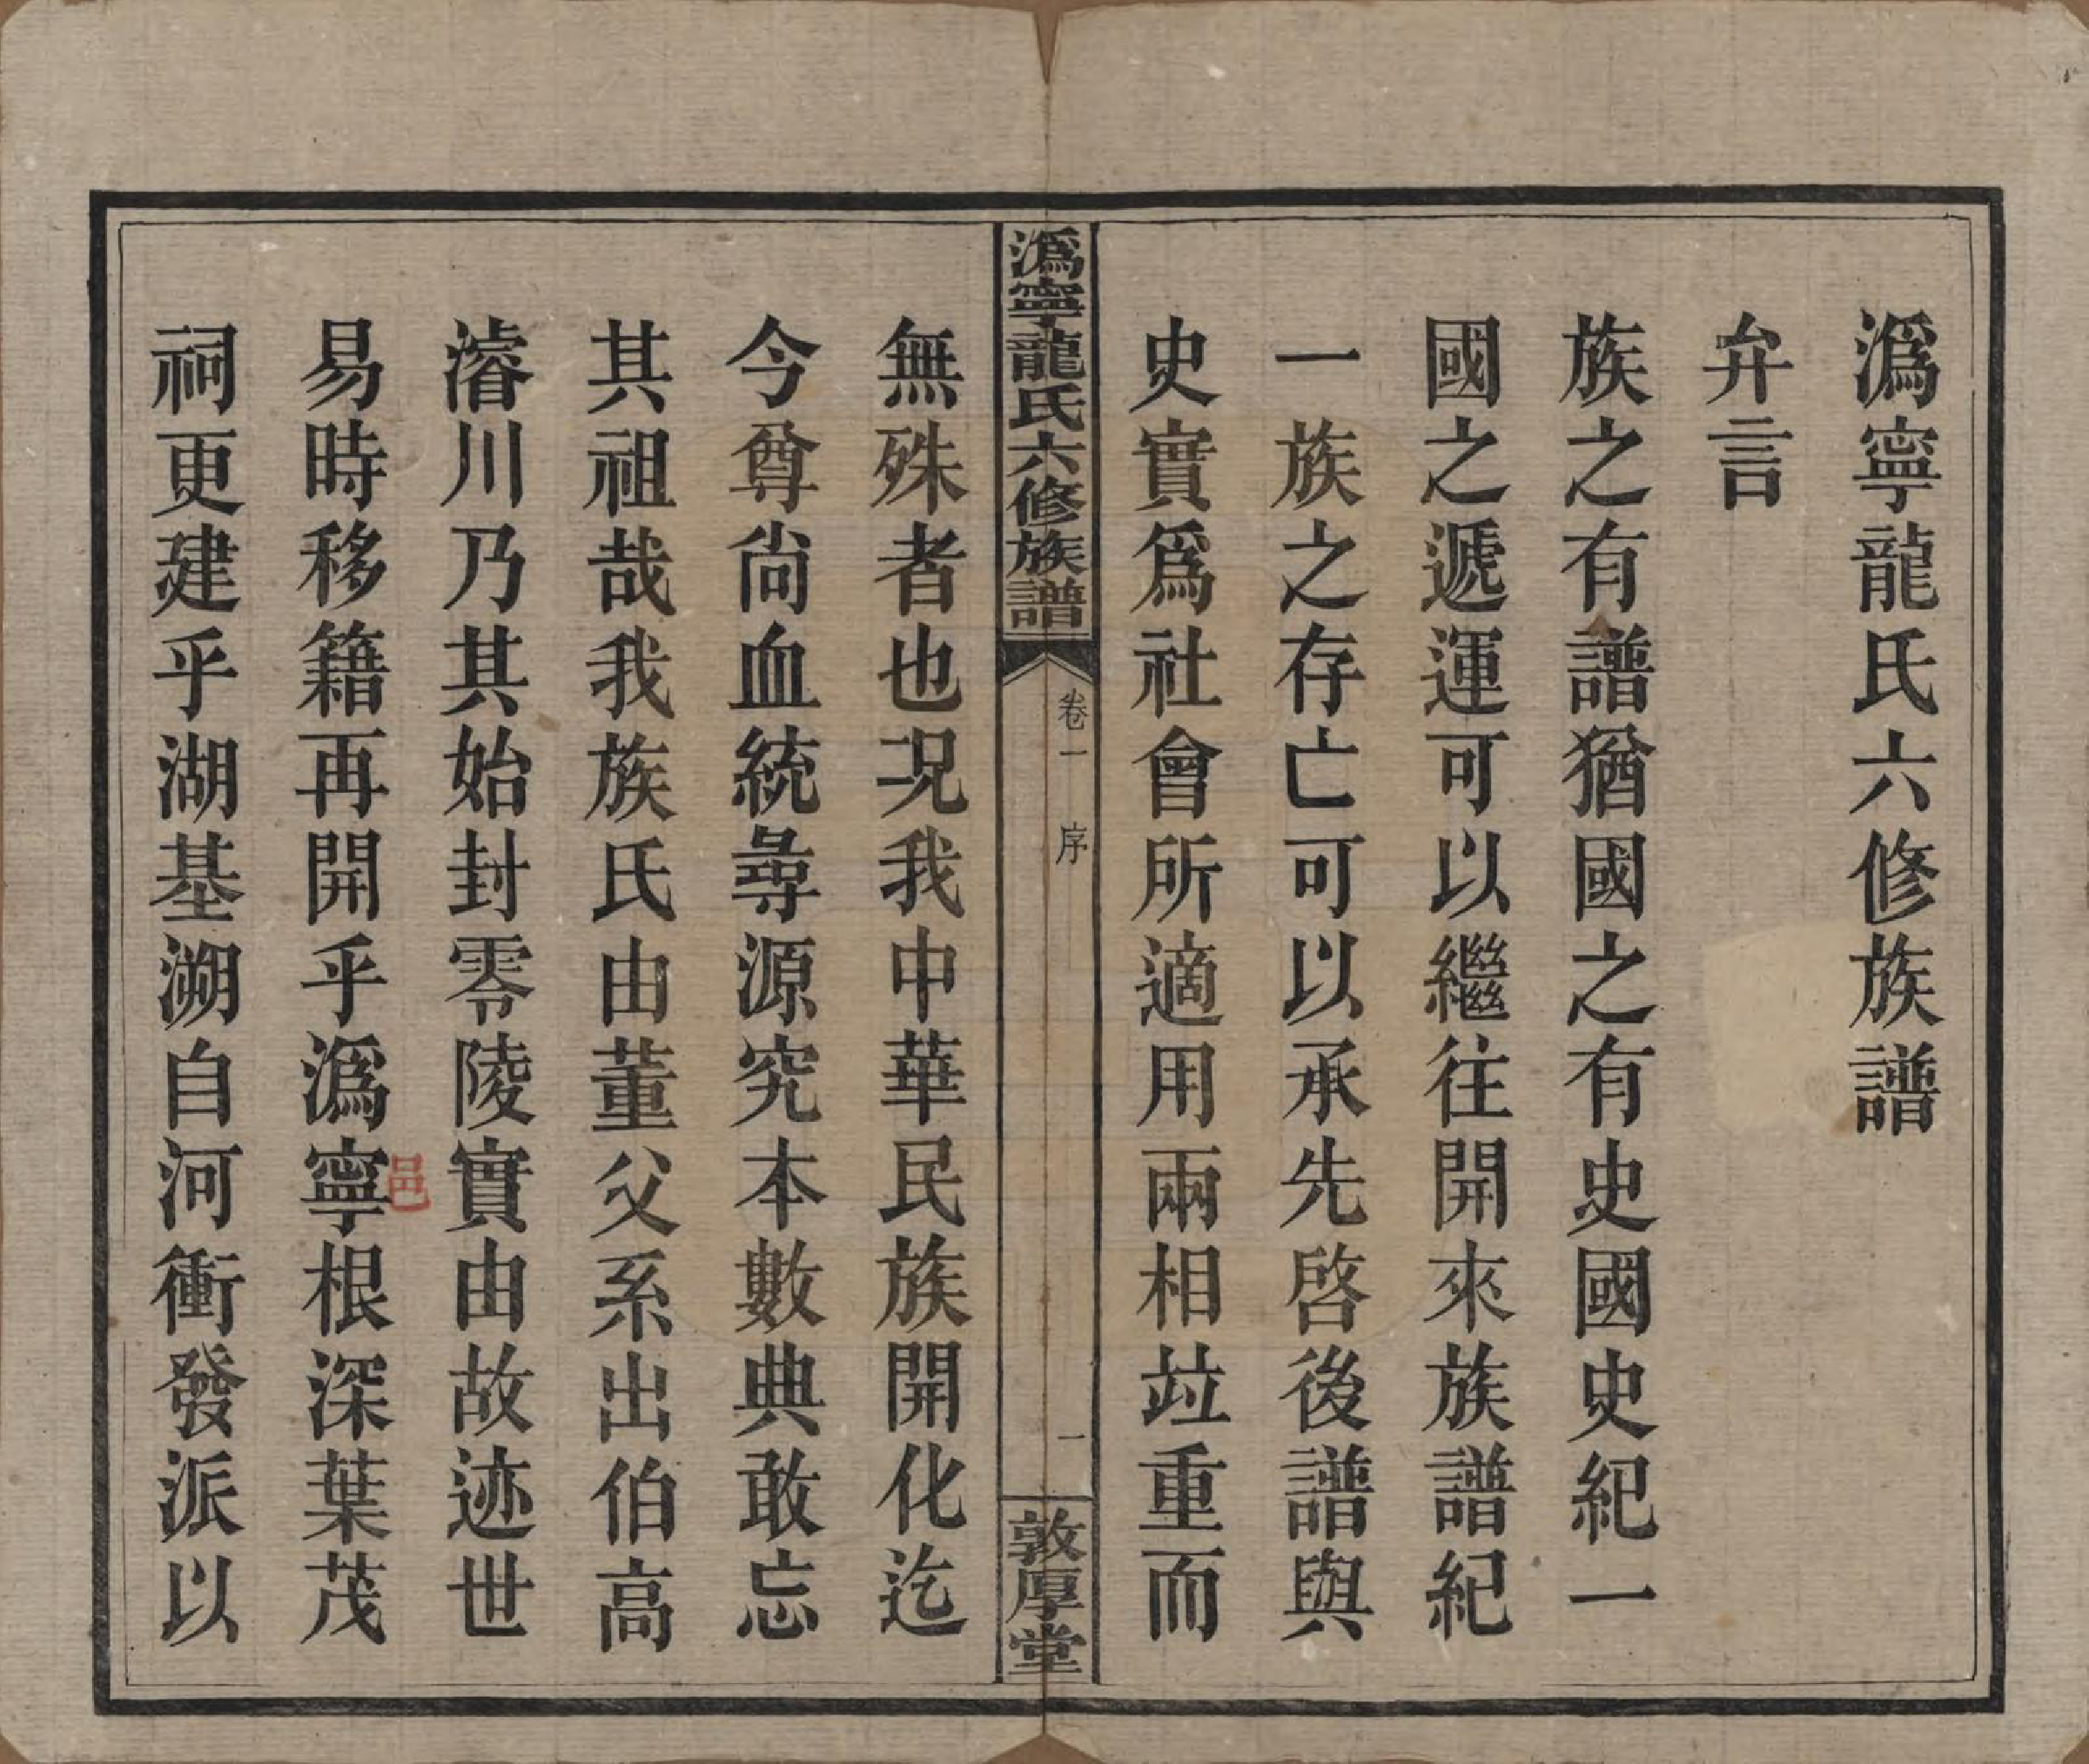 溈寧龍氏六修族譜
弁言
族之有譜猶國之有史國史紀一
國之遞運可以繼往開來族譜紀
一族之存亡可以承先啓後譜與
史實爲社會所適用兩相竝重而
溈寧龍氏六修族譜
卷一 序
一
敦厚堂
無殊者也況我中華民族開化迄
今尊尚血統尋源究本數典敢忘
其祖哉我族氏由董父系出伯高
濬川乃其始封零陵實由故迹世
易時移籍再開乎溈寧根深葉茂
邑
祠更建乎湖基溯自河衝發派以